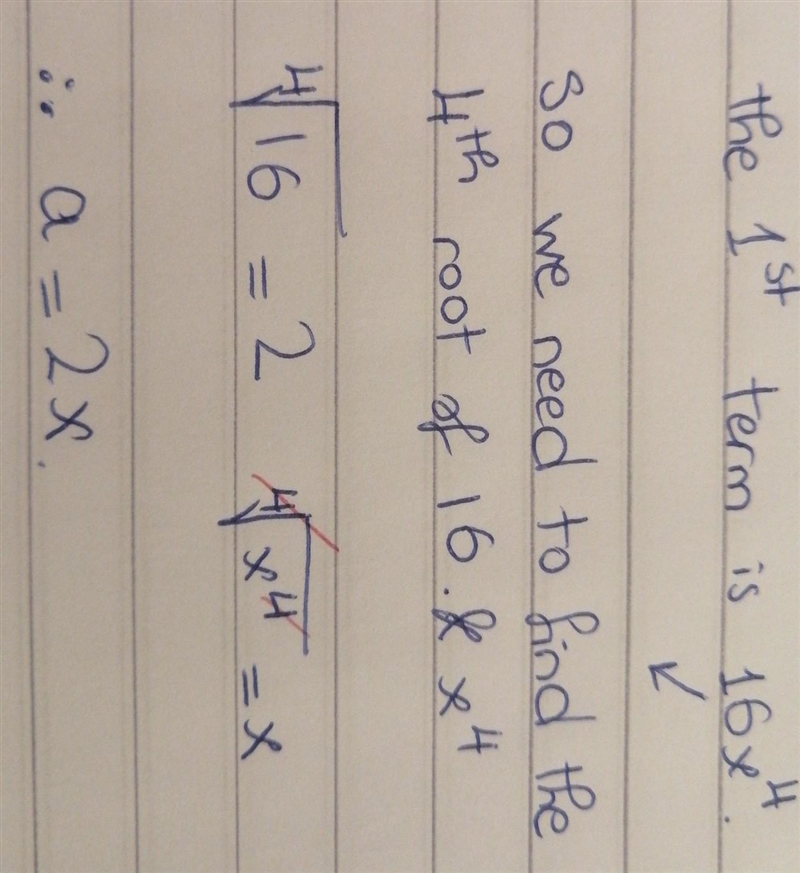 the 1st term is 16x⁴.
↙
So we need to find the
4th root of 16 . & x⁴
∜16 = 2 ∜x⁴ = x
∴ a = 2x.